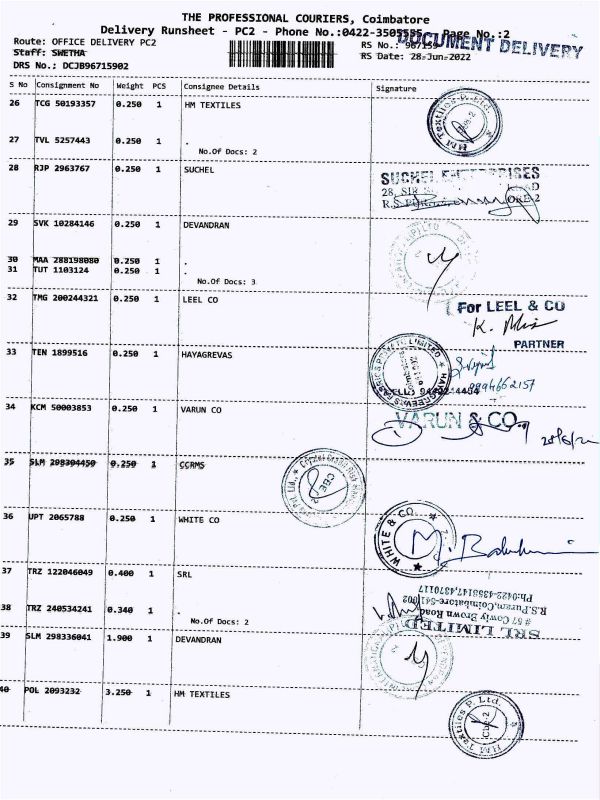 THE PROFESSIONAL COURIERS, Coimbatore
Delivery Runsheet - PC2 - Phone No.:0422-3505555 Page No.:2
DOCUMENT DELIVERY
Route: OFFICE DELIVERY PC2
RS No.: 967159
Staff: SWETHA
RS Date: 28-Jun-2022
DRS No.: DCJB96715902
S No Consignment No Weight PCS Consignee Details Signature
26 TCG 50193357 0.250 1 HM TEXTILES
HM Textiles P. Ltd.
27 TVL 5257443 0.250 1 .
No.Of Docs: 2
28 RJP 2963767 0.250 1 SUCHEL
SUCHEL ENTERPRISES
28, SIR
R.S.
29 SVK 10284146 0.250 1 DEVANDRAN
30 MAA 288198080 0.250 1 .
31 TUT 1103124 0.250 1 .
No.Of Docs: 3
32 TMG 200244321 0.250 1 LEEL CO
For LEEL & CO
PARTNER
33 TEN 1899516 0.250 1 HAYAGREVAS
9994662157
34 KCM 50003853 0.250 1 VARUN CO
VARUN & CO.
35 SLM 298394450 0.250 1 CCRMS
CBE
36 UPT 2065788 0.250 1 WHITE CO
WHITE & CO.
37 TRZ 122046049 0.400 1 SRL
38 TRZ 240534241 0.340 1 .
No.Of Docs: 2
SRL LIMITED
# 57 Cowly Brown Road
R.S.Puram, Coimbatore-641 002
Ph:0422-4358147,4370117
39 SLM 298336041 1.900 1 DEVANDRAN
40 POL 2093232 3.250 1 HM TEXTILES
HM Textiles P. Ltd.